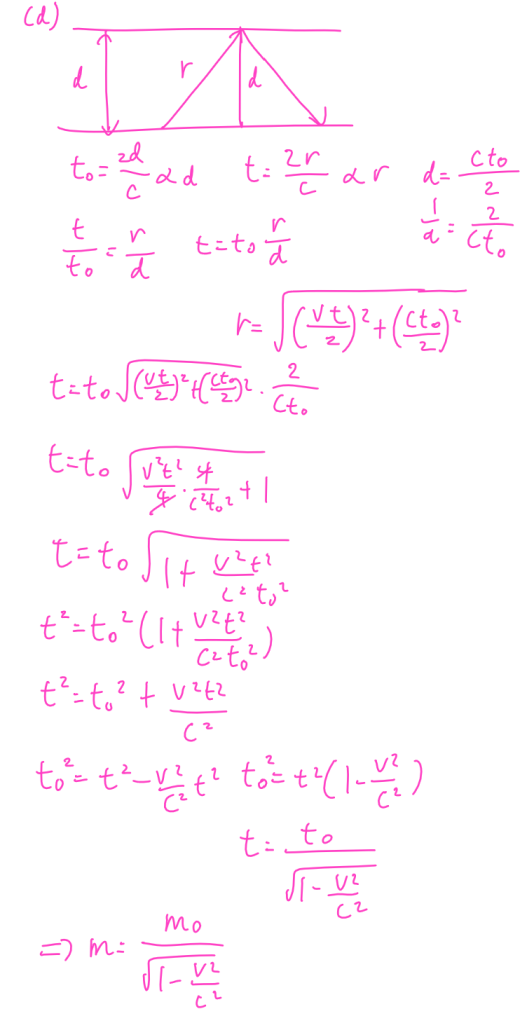 (d)
d r d
t₀ = 2d/c ∝ d t = 2r/c ∝ r d = ct₀/2
t/t₀ = r/d t = t₀ r/d 1/d = 2/ct₀
r = √((vt/2)² + (ct₀/2)²)
t = t₀ √((vt/2)² + (ct₀/2)²) · 2/ct₀
t = t₀ √(v²t²/4 · 4/c²t₀² + 1)
t = t₀ √(1 + v²t²/c²t₀²)
t² = t₀² (1 + v²t²/c²t₀²)
t² = t₀² + v²t²/c²
t₀² = t² - v²/c² t² t₀² = t² (1 - v²/c²)
t = t₀/√(1 - v²/c²)
⇒ m = m₀/√(1 - v²/c²)